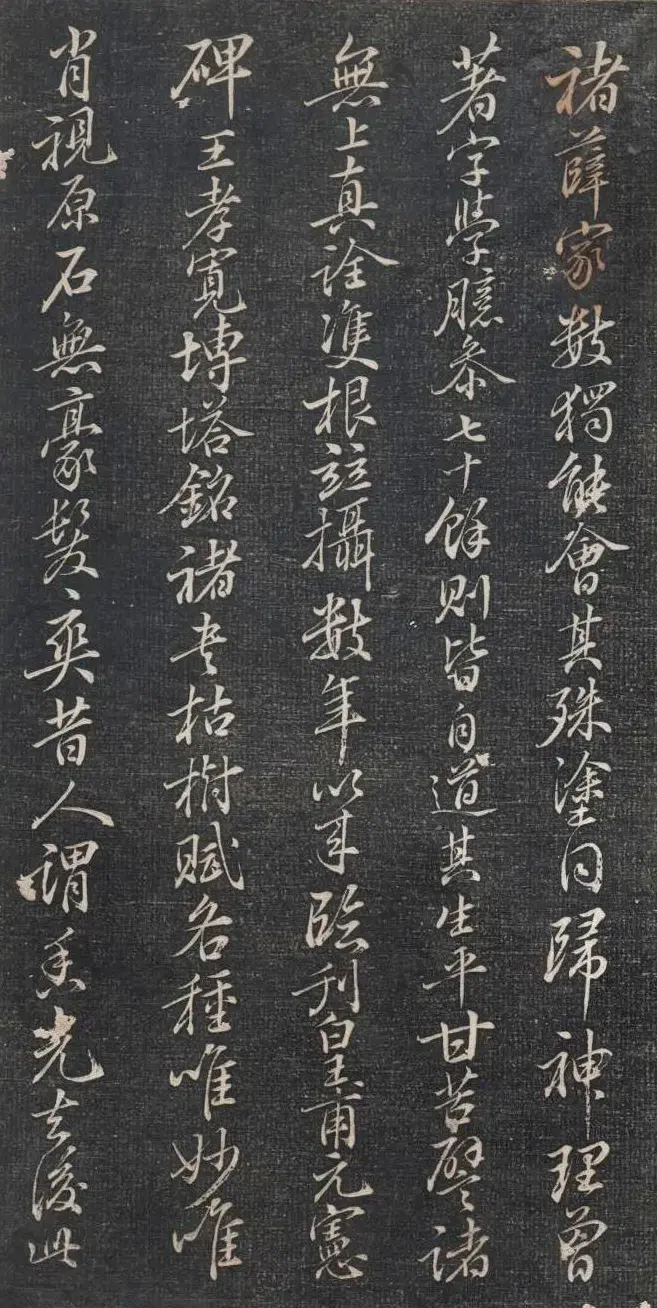 褚薛家數獨能會其殊塗同歸神理曾
著字學臆參七十餘則皆自道其生平甘苦譬諸
無上真詮雙根竝攝數年以來臨刊皇甫元憲
碑王孝寬塼塔銘褚書枯樹賦各種唯妙唯
肖視原石無豪髮爽昔人謂香光去後此